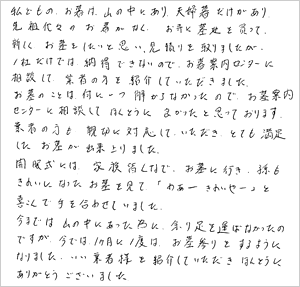 私どもの、お墓は、山の中にあり、夫婦墓だけがあり
先祖代々の お墓がなく、お寺に墓地を買って、
新しく お墓をしたいと思い、見積りを取りましたが、
1社だけでは、納得できないので、お墓案内センターに
相談して、業者の方を紹介していただきました。
お墓のことは、何に一つ 解からなかったので、お墓案内
センターに相談して ほんとうに よかったと思っております。
業者の方も 親切に対応していただき、とても満足
した お墓が出来上りました。
開眼式には、家族皆んなで、お墓に行き、孫も
きれいになったお墓を見て「わあー きれいやー」と
喜こんで手を合わせていました。
今までは、山の中にあった為に、余り足を運ばなかったの
ですが、今では1ヶ月に1度は、お墓参りをするように
なりました。いい業者様を紹介していただき ほんとうに
ありがとう ございました